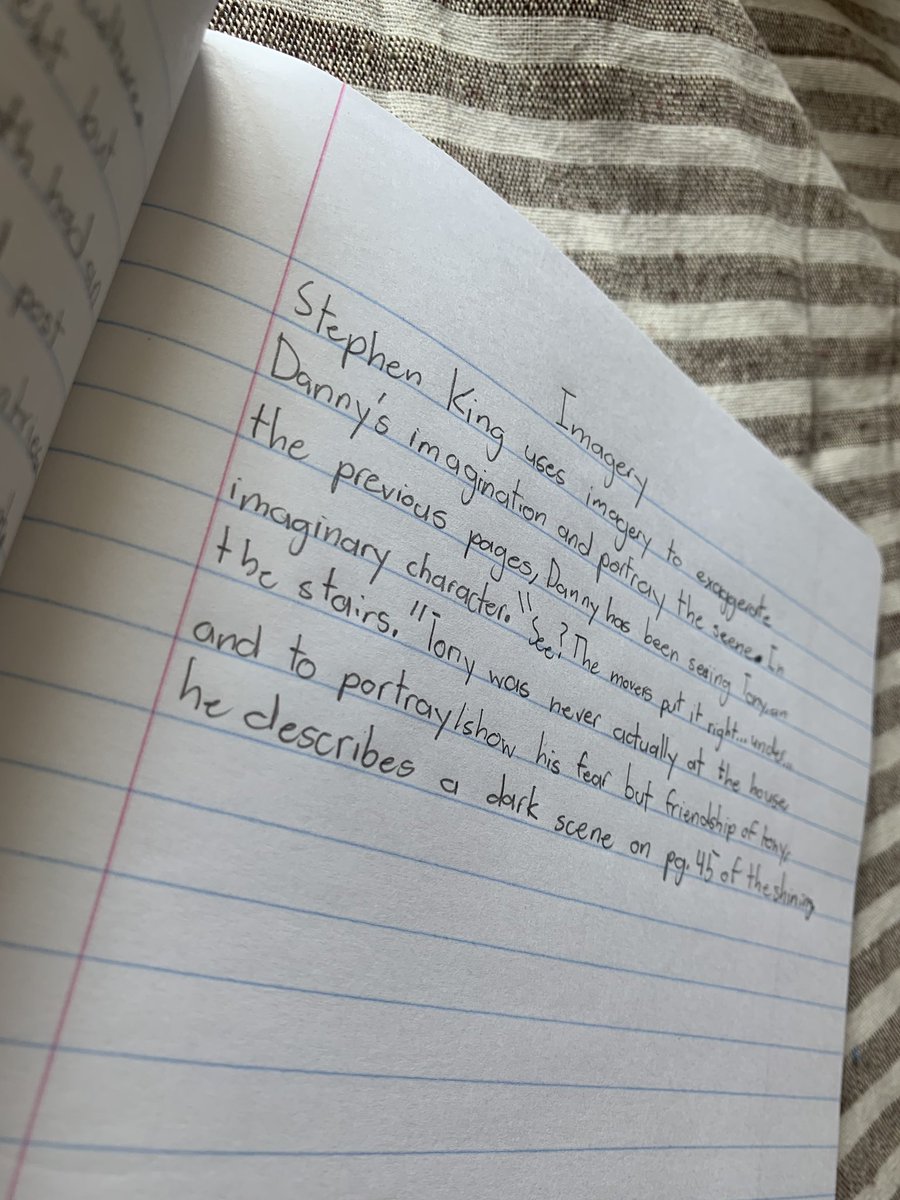 Imagery
Stephen King uses imagery to exaggerate
Danny's imagination and portray the scene. In
the previous pages, Danny has been seeing Tony, an
imaginary character. "See? The movers put it right...under...
the stairs." Tony was never actually at the house,
and to portray/show his fear but friendship of tony,
he describes a dark scene on pg. 45 of the shining